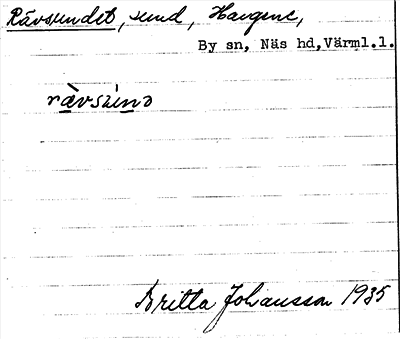 Rävsundet, sund, Haugene,
By sn, Näs hd, Värml.l.
rävsun̲d
Britta Johansson 1935